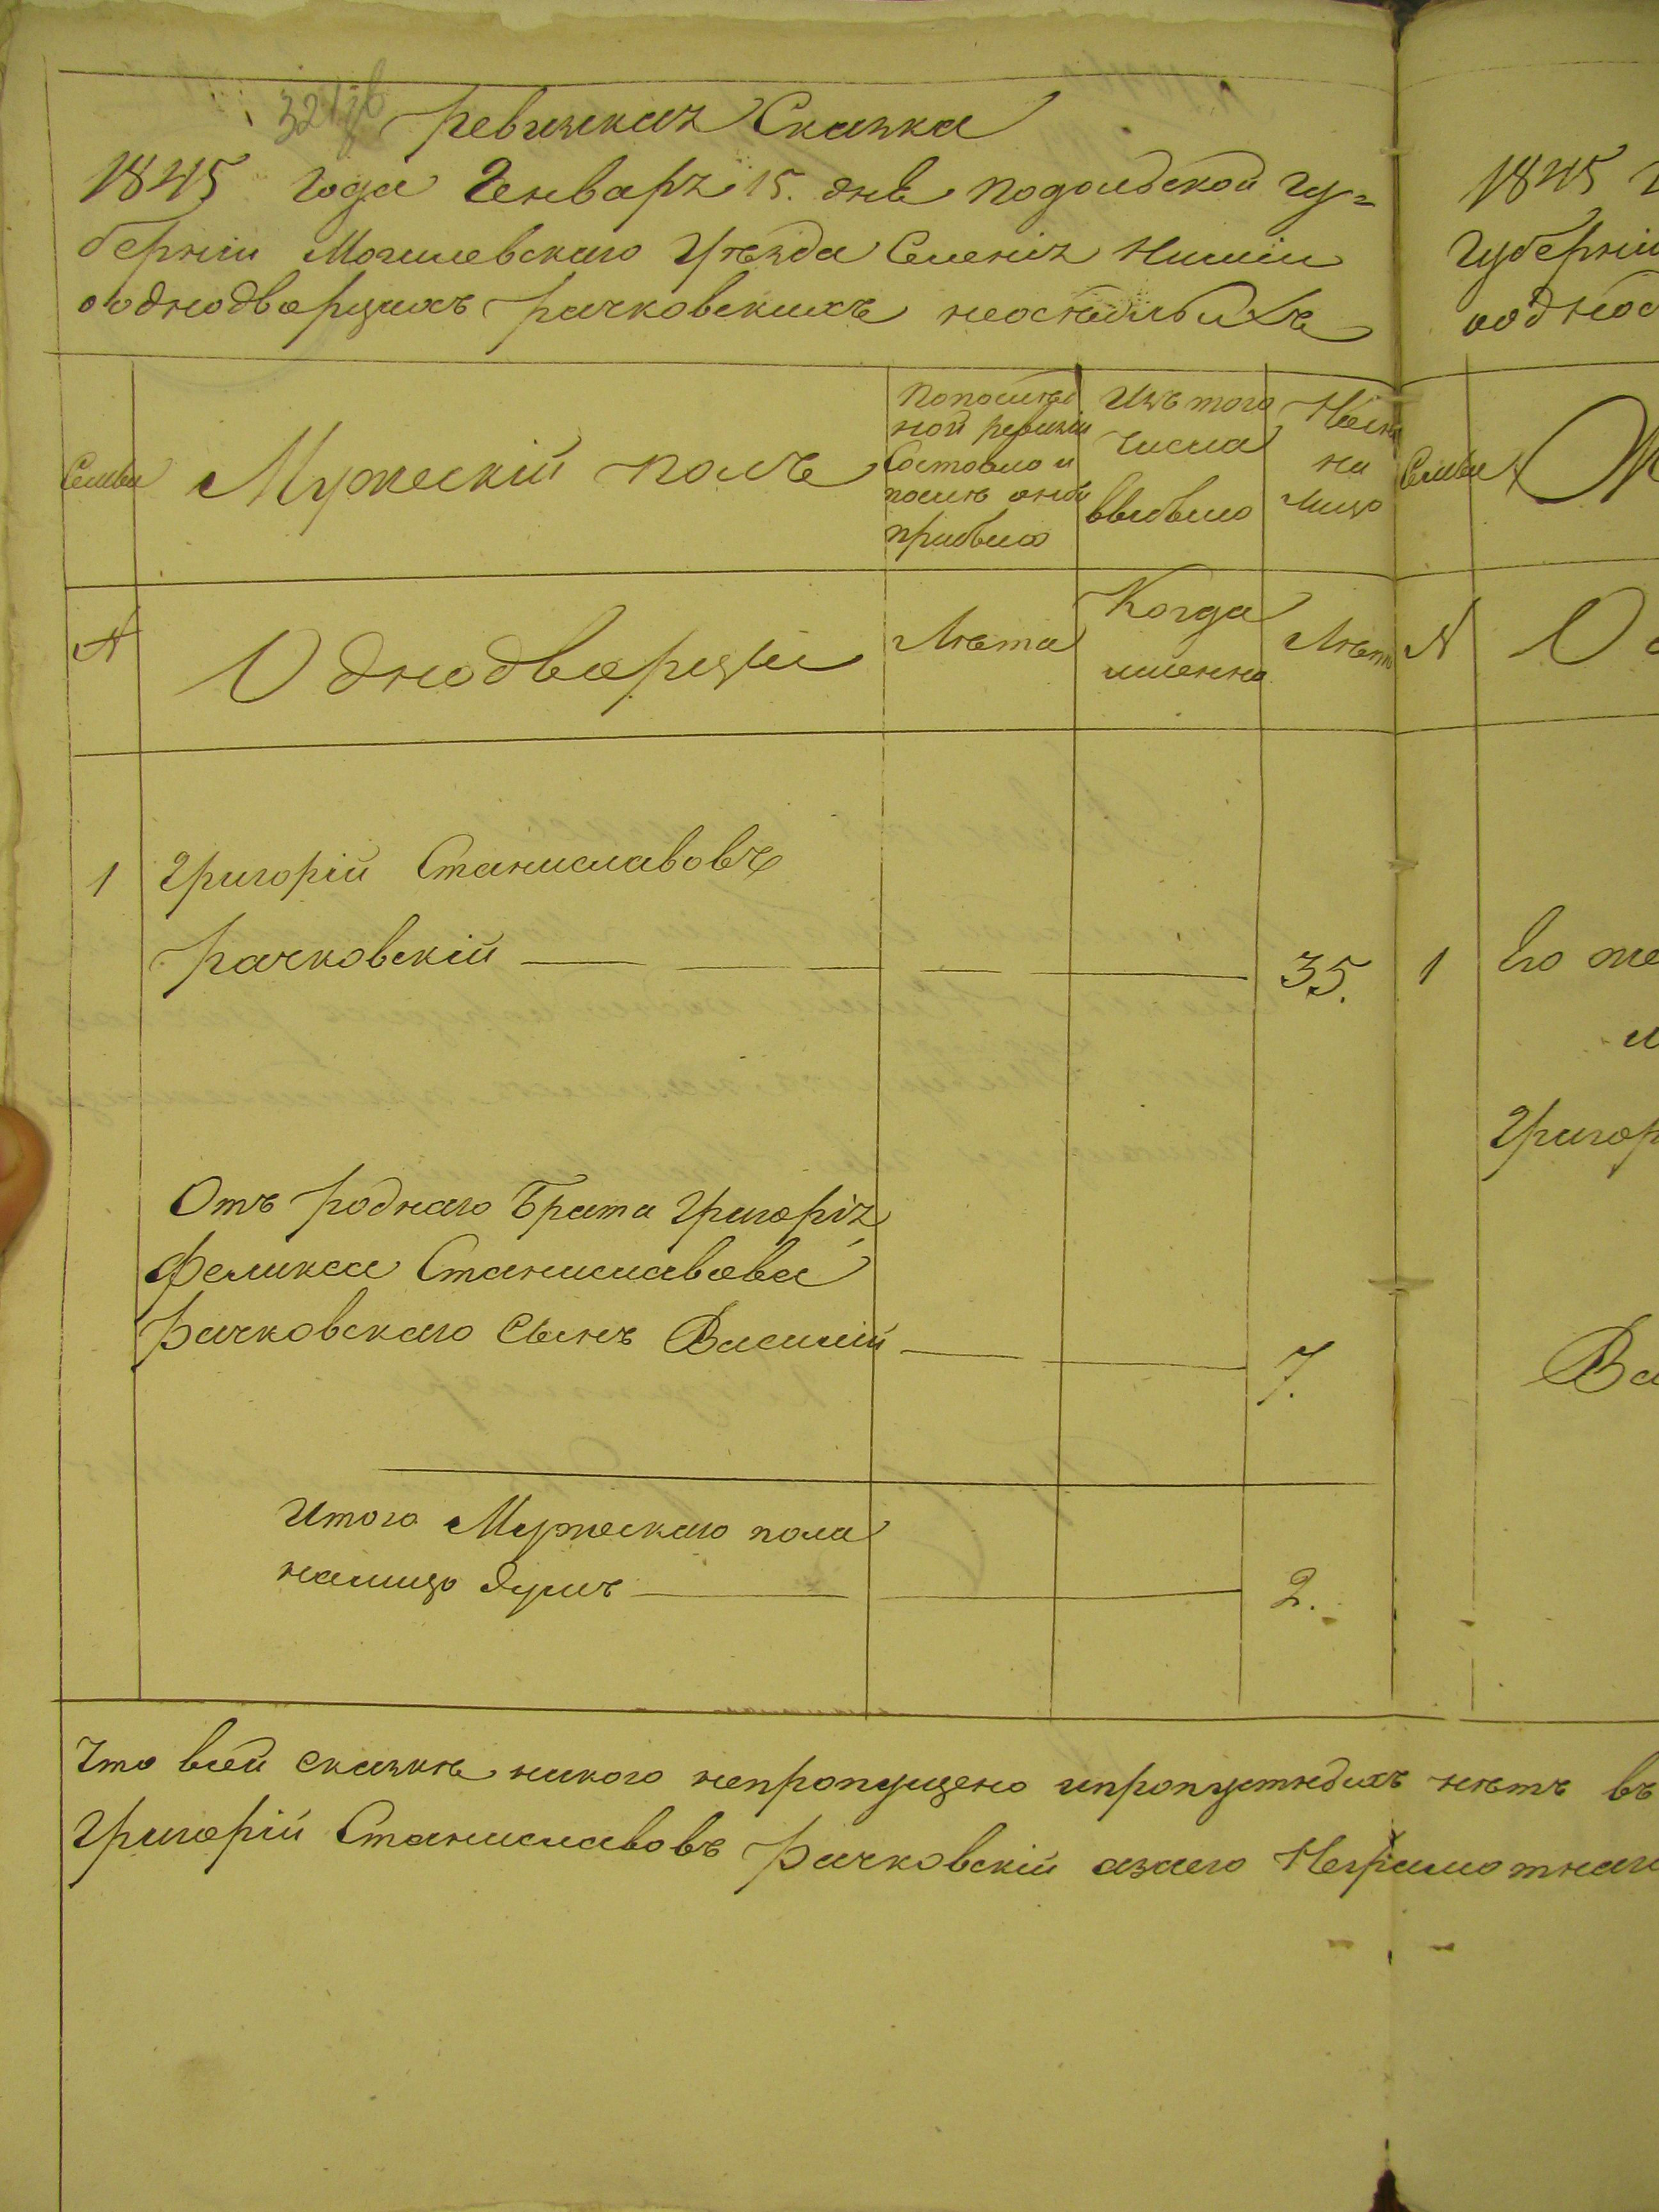 Ревизкая Сказка
1845 года Генваря 15. дня Подольской гу=
берніи Могилевскаго Уѣзда Селенія
о однодворцахъ Рачковскихъ неосѣдлыхъ
Семьи
Мужескій полъ
По послѣд
ной ревизіи
Состояло и
послѣ оной
прибыло
Изъ того
числа
выбыло
Нын
на
лицо
Семьи
№
Однодворцы
Лѣта
Когда
именно
Лѣта
№
1
Григорій Станиславовъ
Рачковскій
35.
Отъ роднаго Брата Григорія
Феликса Станиславова
Рачковскаго сынъ Василій
7.
Итого Мужескаго пола
налицо душъ
2.
Что всей сказкѣ никого непропущено ипропустныхъ нѣтъ въ
Григорій Станиславовъ Рачковскій азаего Неграмотнаго
1845
Губерніи
1
Его же
Григор
Ва